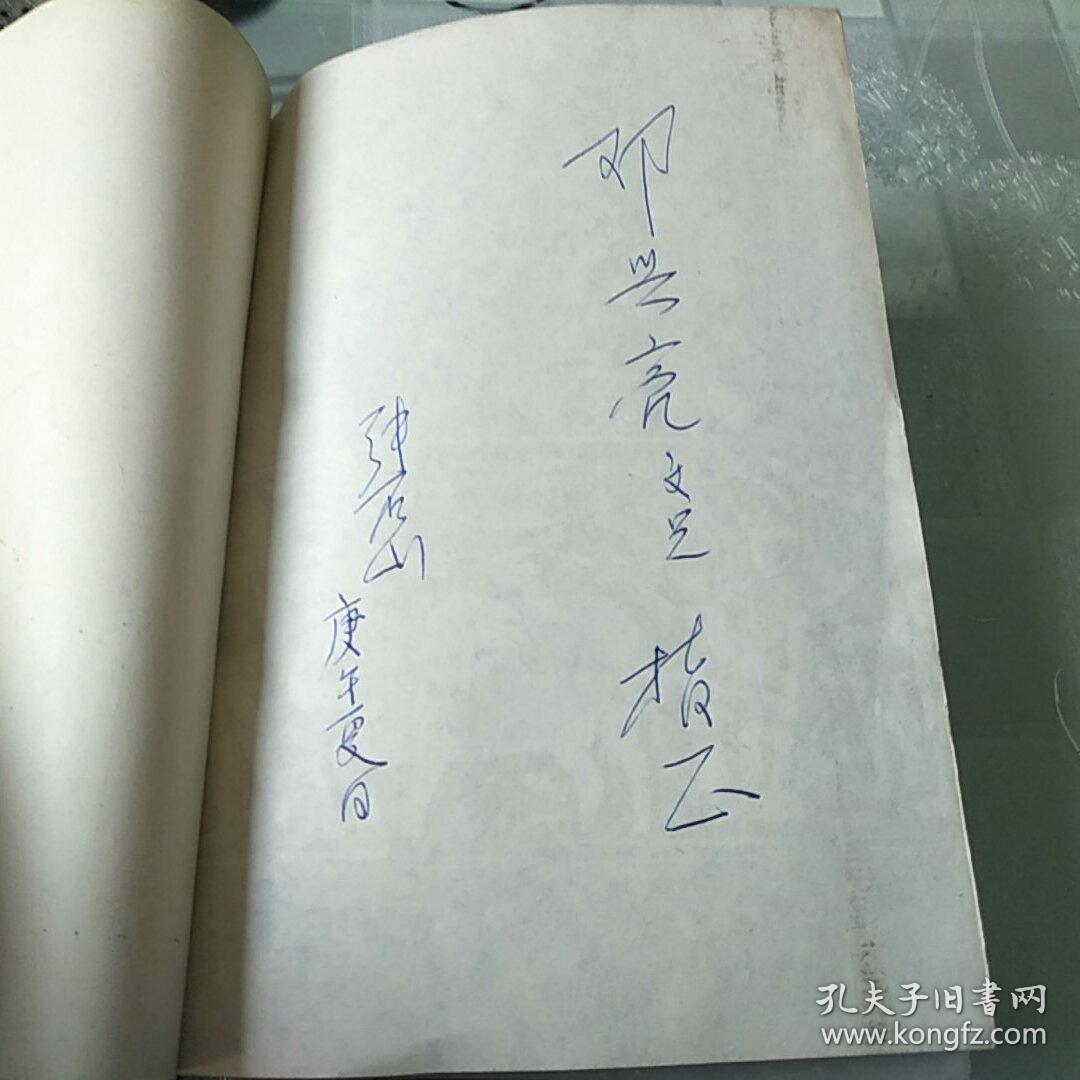 邓兴亮文兄 指正
张石山
庚午夏日
孔夫子旧書网
www.kongfz.com